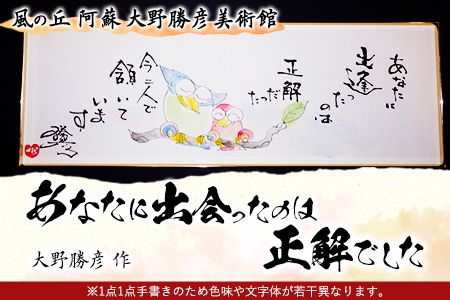 風の丘 阿蘇 大野勝彦美術館
あなたに
出逢
ったのは
正解
だった
今二人で
頷いて
います
あなたに出会ったのは
正解でした
大野勝彦 作
※1点1点手書きのため色味や文字体が若干異なります。